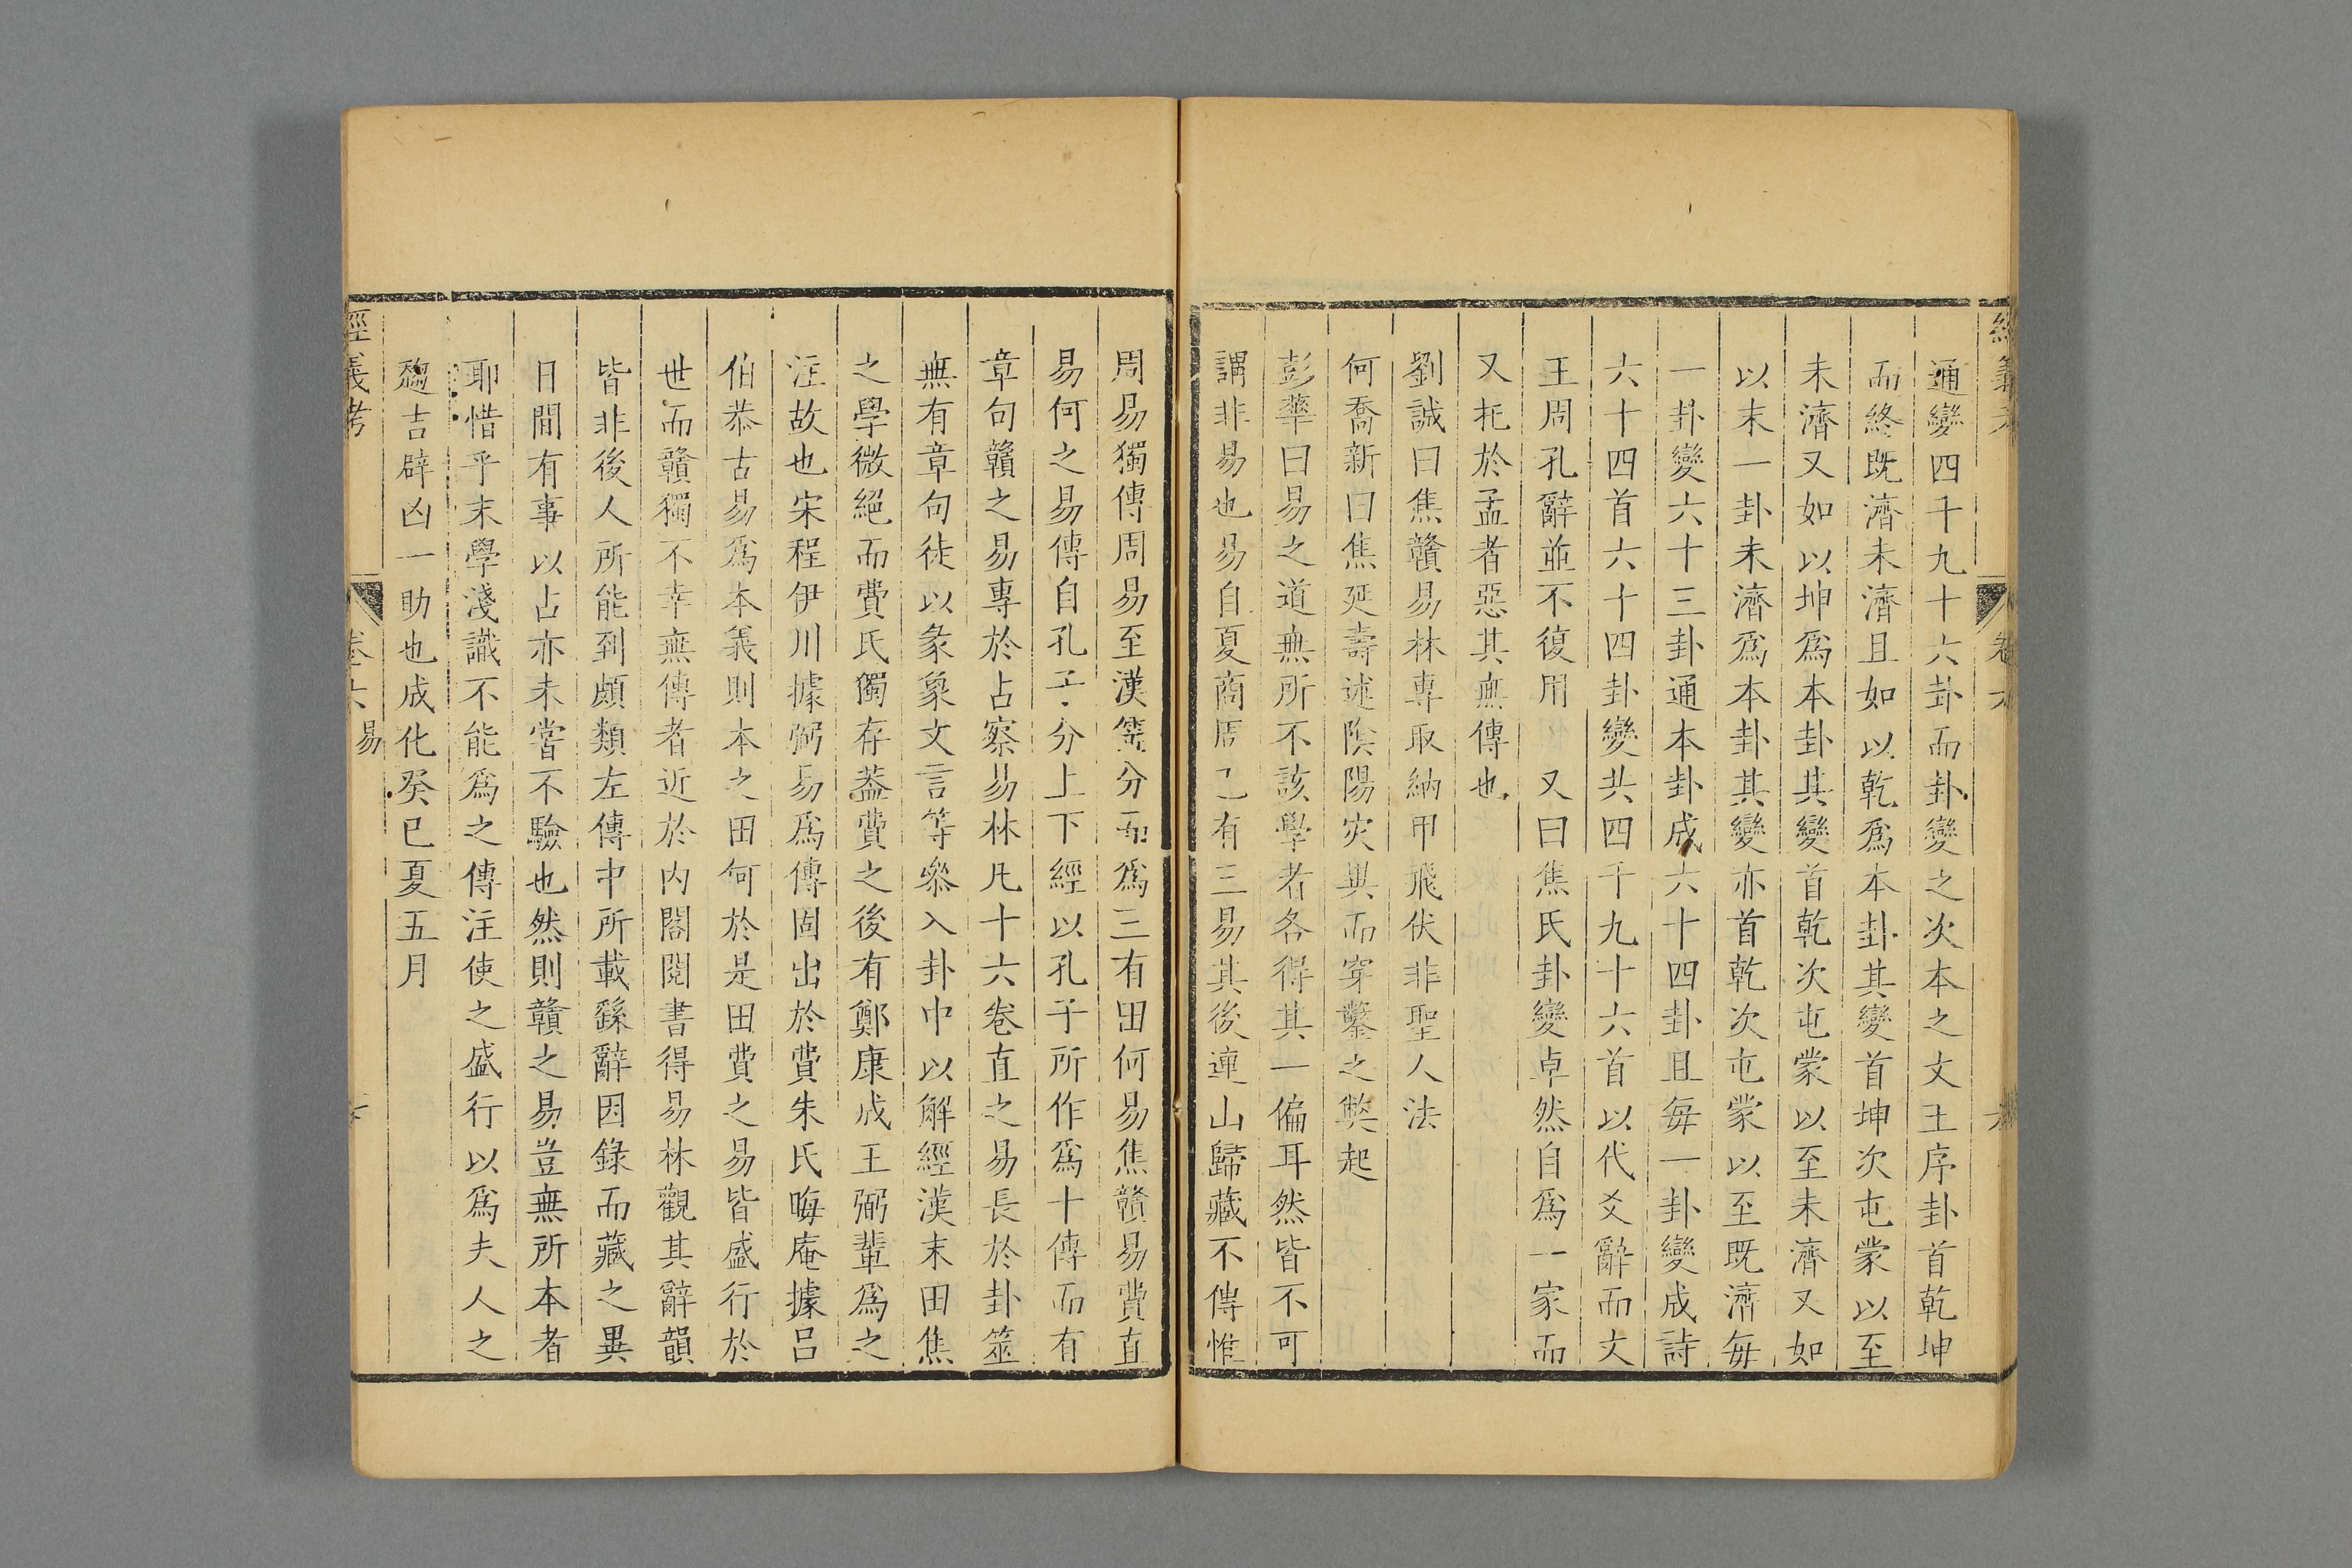 經義考
卷六
六
通變四千九十六卦而卦變之次本之文王序卦首乾坤
而終既濟未濟且如以乾爲本卦其變首坤次屯蒙以至
未濟又如以坤爲本卦其變首乾次屯蒙以至未濟又如
以末一卦未濟爲本卦其變亦首乾次屯蒙以至既濟每
一卦變六十三卦通本卦成六十四卦且每一卦變成詩
六十四首六十四卦變共四千九十六首以代爻辭而文
王周孔辭並不復用 又曰焦氏卦變卓然自爲一家而
又托於孟者惡其無傳也
劉誠曰焦贛易林專取納甲飛伏非聖人法
何喬新曰焦延壽述陰陽灾異而穿鑿之獘起
彭華曰易之道無所不該學者各得其一偏耳然皆不可
謂非易也易自夏商周已有三易其後連山歸藏不傳惟
周易獨傳周易至漢筭分而爲三有田何易焦贛易費直
易何之易傳自孔子分上下經以孔子所作爲十傳而有
章句贛之易專於占察易林凡十六卷直之易長於卦筮
無有章句徒以彖象文言等叅入卦中以解經漢末田焦
之學微絕而費氏獨存葢費之後有鄭康成王弼輩爲之
注故也宋程伊川據弼易爲傳固出於費朱氏晦庵據呂
伯恭古易爲本義則本之田何於是田費之易皆盛行於
世而贛獨不幸無傳者近於內閣閱書得易林觀其辭韻
皆非後人所能到頗類左傳中所載繇辭因錄而藏之異
日間有事以占亦未嘗不驗也然則贛之易豈無所本者
耶惜乎末學淺識不能爲之傳注使之盛行以爲夫人之
趨吉辟凶一助也成化癸巳夏五月
經義考
卷六 易